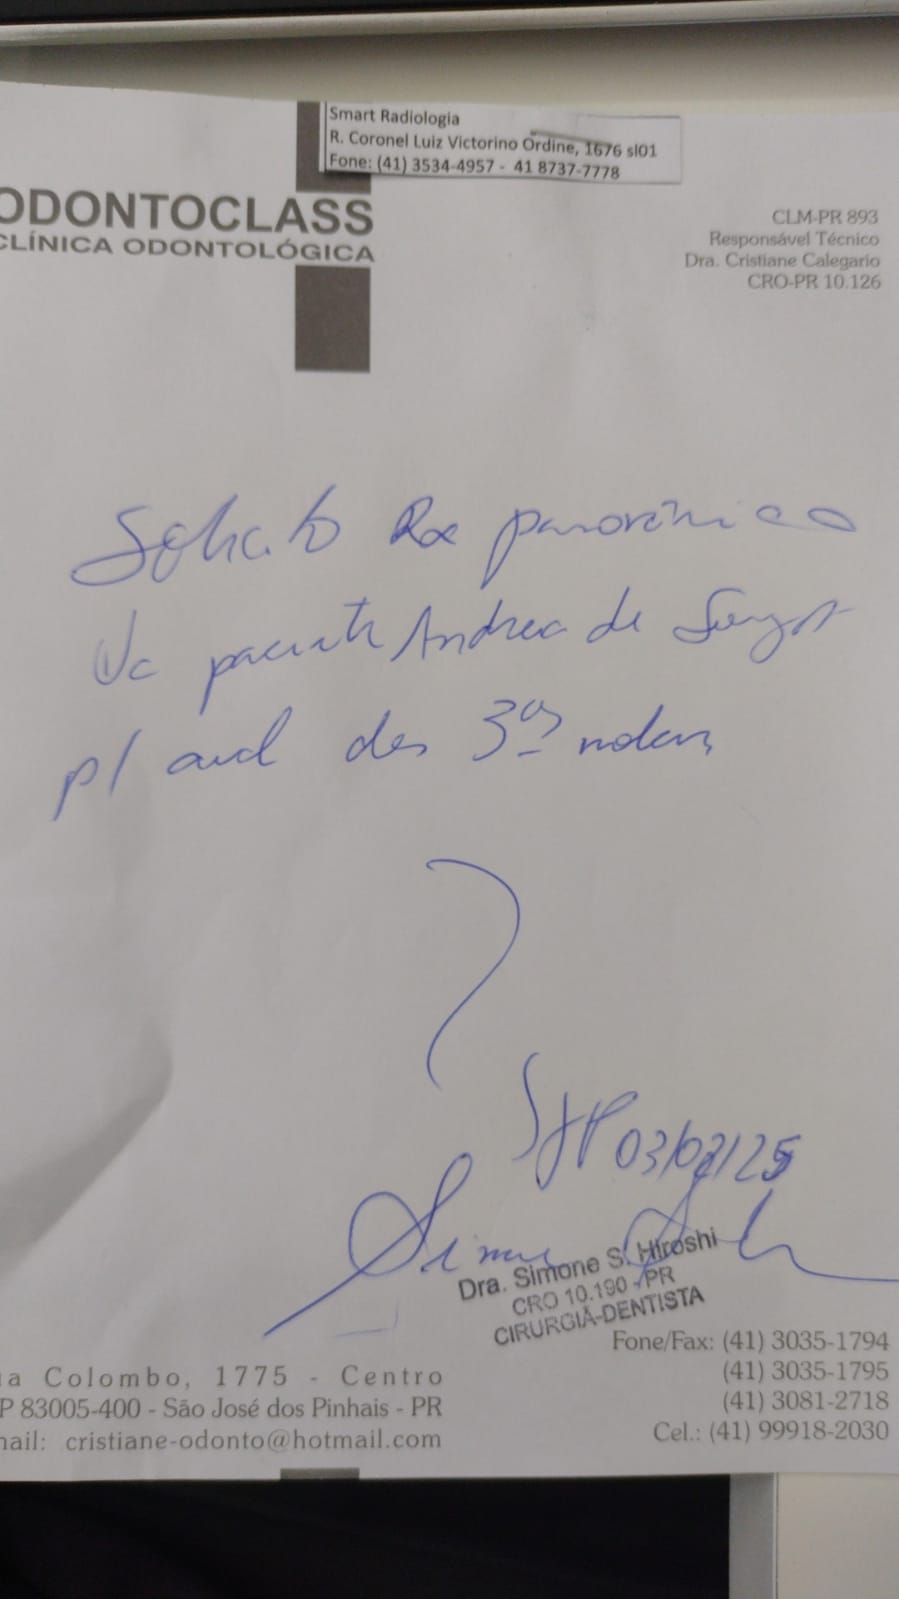 Smart Radiologia
R. Coronel Luiz Victorino Ordine, 1676 sl01
Fone: (41) 3534-4957 - 41 8737-7778
ODONTOCLASS
CLÍNICA ODONTOLÓGICA
CLM-PR 893
Responsável Técnico
Dra. Cristiane Calegario
CRO-PR 10.126
Solicito Rx panorâmico
paciente Andrea de
p/ aval dos 3os molares
SJP 03/02/25
Dra. Simone S. Hiroshi
CRO 10.190 - PR
CIRURGIÃ-DENTISTA
a Colombo, 1775 - Centro
P 83005-400 - São José dos Pinhais - PR
ail: cristiane-odonto@hotmail.com
Fone/Fax: (41) 3035-1794
(41) 3035-1795
(41) 3081-2718
Cel.: (41) 99918-2030